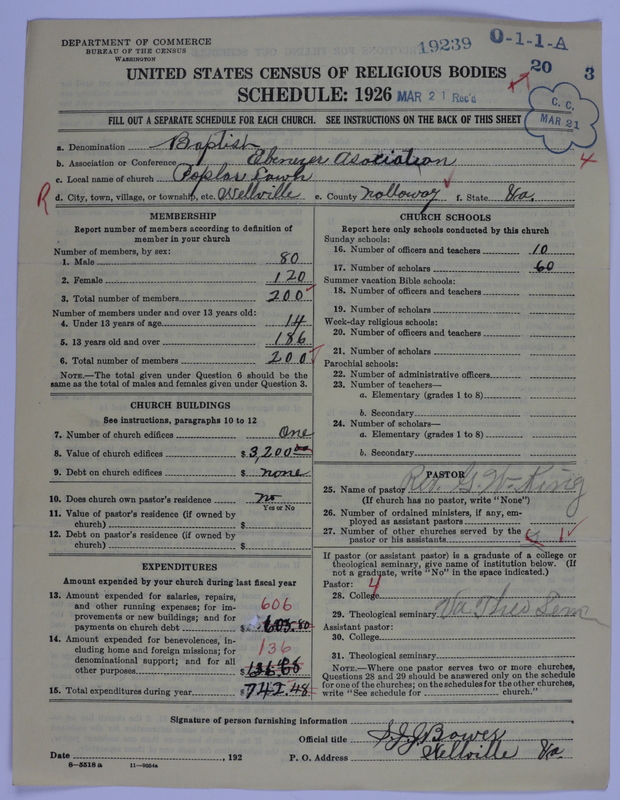 DEPARTMENT OF COMMERCE
BUREAU OF THE CENSUS
WASHINGTON
19239 O-1-1-A
20 3
UNITED STATES CENSUS OF RELIGIOUS BODIES
SCHEDULE: 1926 MAR 21 Rec'd
C. C.
MAR 21
FILL OUT A SEPARATE SCHEDULE FOR EACH CHURCH. SEE INSTRUCTIONS ON THE BACK OF THIS SHEET
a. Denomination Baptist
b. Association or Conference Ebenezer Asociation
4
c. Local name of church Poplar Lawn
R d. City, town, village, or township, etc. Wellville e. County Nolloway f. State Va.
MEMBERSHIP
Report number of members according to definition of
member in your church
Number of members, by sex:
1. Male 80
2. Female 120
3. Total number of members 200
Number of members under and over 13 years old:
4. Under 13 years of age 14
5. 13 years old and over 186
6. Total number of members 200
NOTE.—The total given under Question 6 should be
same as the total of males and females given under Question 3.
CHURCH BUILDINGS
See instructions, paragraphs 10 to 12
7. Number of church edifices One
8. Value of church edifices $3,200
9. Debt on church edifices $ none
10. Does church own pastor's residence no
Yes or No
11. Value of pastor's residence (if owned by
church) $
12. Debt on pastor's residence (if owned by
church) $
EXPENDITURES
Amount expended by your church during last fiscal year
13. Amount expended for salaries, repairs,
and other running expenses; for im-
provements or new buildings; and for
payments on church debt
606
$ 605.80
14. Amount expended for benevolences, in-
cluding home and foreign missions; for
denominational support; and for all
other purposes
136
$ 136.68
15. Total expenditures during year $742.48
CHURCH SCHOOLS
Report here only schools conducted by this church
Sunday schools:
16. Number of officers and teachers 10
17. Number of scholars 60
Summer vacation Bible schools:
18. Number of officers and teachers
19. Number of scholars
Week-day religious schools:
20. Number of officers and teachers
21. Number of scholars
Parochial schools:
22. Number of administrative officers
23. Number of teachers—
a. Elementary (grades 1 to 8)
b. Secondary
24. Number of scholars—
a. Elementary (grades 1 to 8)
b. Secondary
PASTOR
25. Name of pastor Rev. G. W. King
(If church has no pastor, write "None")
26. Number of ordained ministers, if any, em-
ployed as assistant pastors
27. Number of other churches served by the
pastor or his assistants 1
If pastor (or assistant pastor) is a graduate of a college or
theological seminary, give name of institution below. (If
not a graduate, write "No" in the space indicated.)
Pastor: 4
28. College
29. Theological seminary Va Theo Sem
Assistant pastor:
30. College
31. Theological seminary
NOTE.—Where one pastor serves two or more churches,
Questions 28 and 29 should be answered only on the schedule
for one of the churches; on the schedules for the other churches,
write "See schedule for church."
Signature of person furnishing information
Official title S. J. J. Bower
Date , 192 P. O. Address Wellville Va
8—5518 a 11—9084a